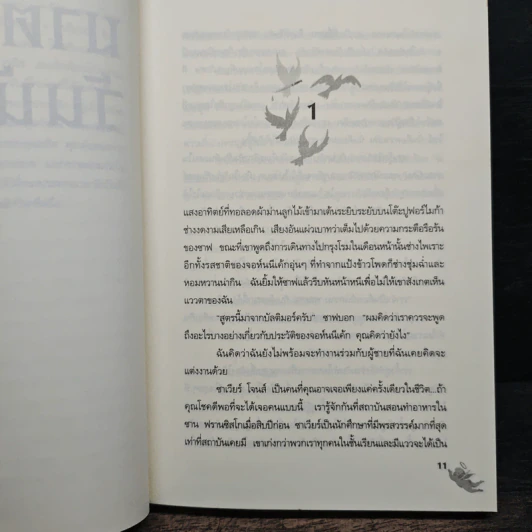 1
แสงอาทิตย์ที่ทอลอดผ้าม่านลูกไม้เข้ามาเต้นระยิบระยับบนโต๊ะปูฟอร์ไมก้า
ช่างงดงามเสียเหลือเกิน เสียงอันแผ่วเบาทว่าเต็มไปด้วยความกระตือรือร้น
ของซาฟ ขณะที่เขาพูดถึงการเดินทางไปกรุงโรมในเดือนหน้านั้นช่างไพเราะ
อีกทั้งรสชาติของจอห์นนีเค้กอุ่นๆ ที่ทำจากแป้งข้าวโพดก็ช่างชุ่มฉ่ำและ
หอมหวานน่ากิน ฉันยิ้มให้ซาฟแล้วรีบหันหน้าหนีเพื่อไม่ให้เขาสังเกตเห็น
แววตาของฉัน
"สูตรนี้มาจากบัลติมอร์ครับ" ซาฟบอก "ผมคิดว่าเราควรจะพูด
ถึงอะไรบางอย่างเกี่ยวกับประวัติของจอห์นนีเค้ก คุณคิดว่ายังไง"
ฉันคิดว่าฉันยังไม่พร้อมจะทำงานร่วมกับผู้ชายที่ฉันเคยคิดจะ
แต่งงานด้วย
ซาเวียร์ โจนส์ เป็นคนที่คุณอาจเจอเพียงแค่ครั้งเดียวในชีวิต..ถ้า
คุณโชคดีพอที่จะได้เจอคนแบบนี้ เรารู้จักกันที่สถาบันสอนทำอาหารใน
ซาน ฟรานซิสโกเมื่อสิบปีก่อน ซาเวียร์เป็นนักศึกษาที่มีพรสวรรค์มากที่สุด
เท่าที่สถาบันเคยมี เขาเก่งกว่าพวกเราทุกคนในชั้นเรียนและมีแววจะได้เป็น
11